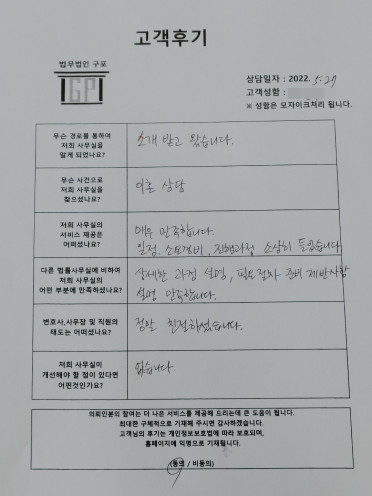 고객후기
법무법인 구포
GP
상담일자 : 2022. 5.27
고객성함 :
※ 성함은 모자이크처리 됩니다.
무슨 경로를 통하여
저희 사무실을
알게 되었나요?
소개 받고 왔습니다.
무슨 사건으로
저희 사무실을
찾으셨나요?
이혼 상담
저희 사무실의
서비스 제공은
어떠셨나요?
매우 만족합니다.
일정, 소요경비, 진행과정 소상히 들었습니다
다른 법률사무실에 비하여
저희 사무실의
어떤 부분에 만족하셨나요?
상세한 과정 설명, 필요절차 준비 제반사항
설명 만족합니다.
변호사,사무장 및 직원의
태도는 어떠셨나요?
정말 친절하셨습니다.
저희 사무실이
개선해야 할 점이 있다면
어떤것인가요?
없습니다.
의뢰인분의 참여는 더 나은 서비스를 제공해 드리는데 큰 도움이 됩니다.
최대한 구체적으로 기재해 주시면 감사하겠습니다.
고객님의 후기는 개인정보보호법에 따라 보호되며,
홈페이지에 익명으로 기재됩니다.
(동의 / 비동의)